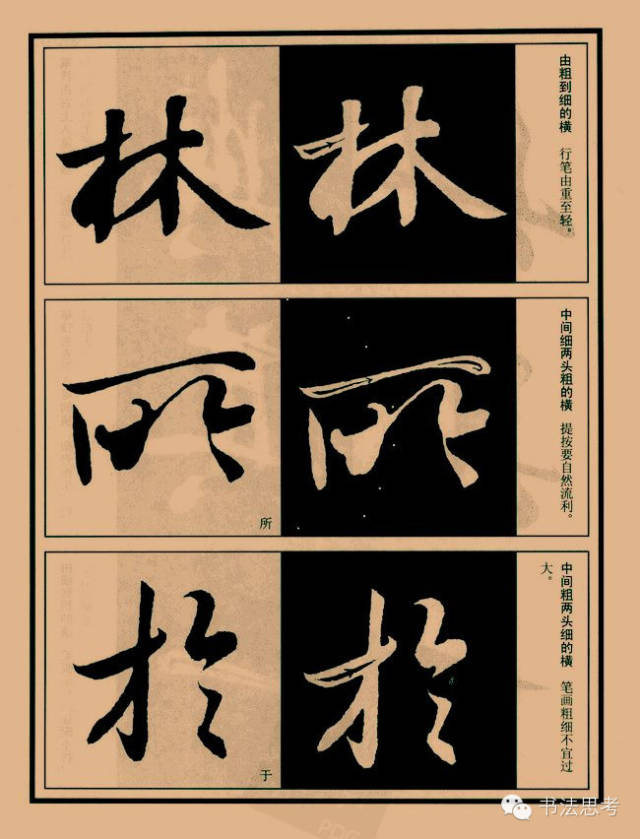 由粗到细的横 行笔由重至轻。
林 林
中间细两头粗的横 提按要自然流利。
所 所
所
中间粗两头细的横 笔画粗细不宜过
大。
於 於
于
书法思考
PDG